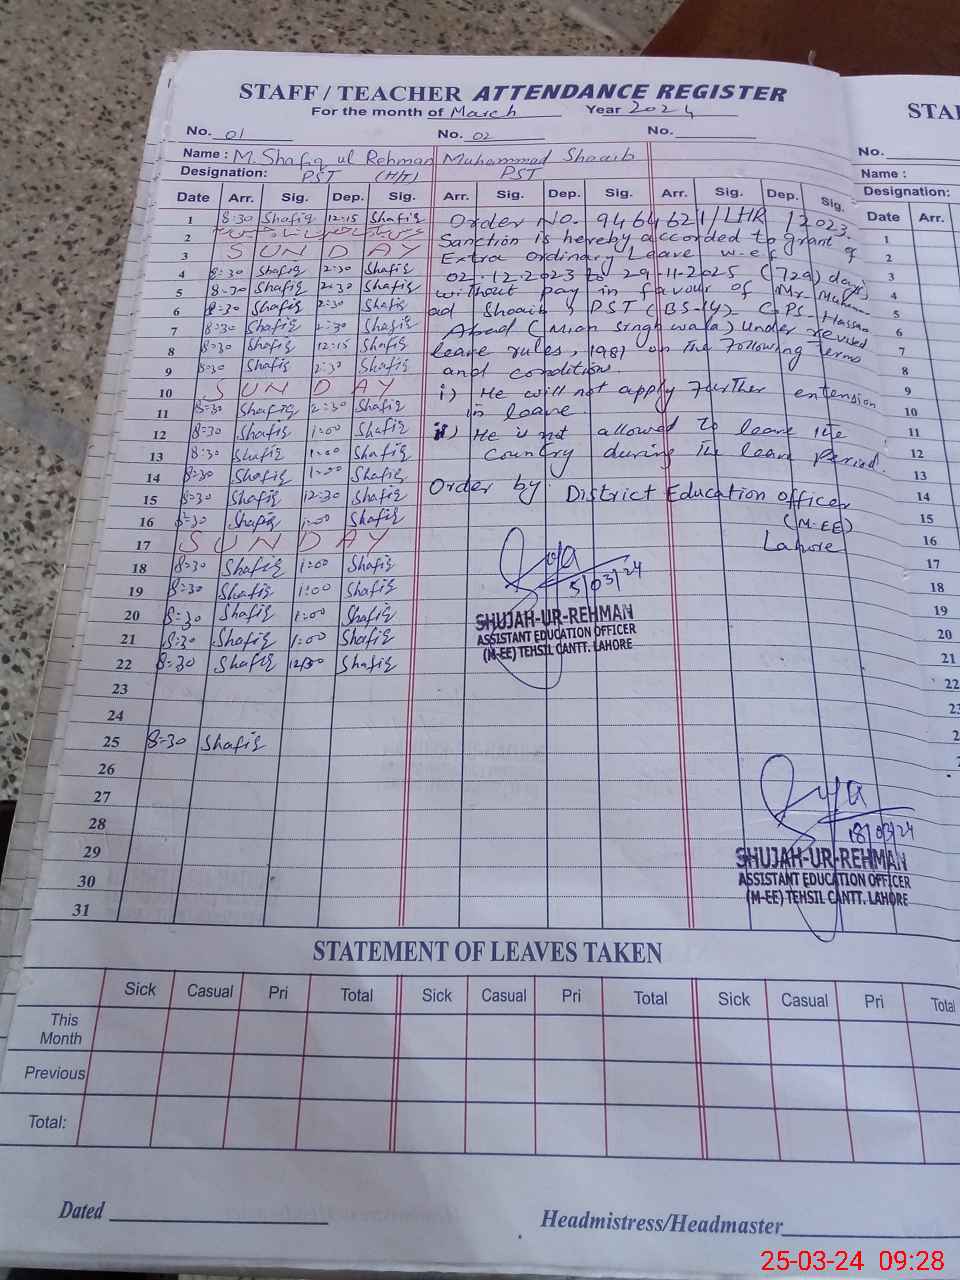 STAFF / TEACHER ATTENDANCE REGISTER
For the month of March Year 2024
No. 01 No. 02 No.
Name : M. Shafiq ul Rehman Muhammad Shoaib
Designation: PST (HT) PST
Date Arr. Sig. Dep. Sig. Arr. Sig. Dep. Sig. Arr. Sig. Dep. Sig.
1 8:30 Shafiq 12:15 Shafiq
2
3 S U N D A Y
4 8:30 Shafiq 2:30 Shafiq
5 8:30 Shafiq 2:30 Shafiq
6 8:30 Shafiq 2:30 Shafiq
7 8:30 Shafiq 2:30 Shafiq
8 8:30 Shafiq 12:15 Shafiq
9 8:30 Shafiq 2:30 Shafiq
10 S U N D A Y
11 8:30 Shafiq 2:30 Shafiq
12 8:30 Shafiq 1:00 Shafiq
13 8:30 Shafiq 1:00 Shafiq
14 8:30 Shafiq 1:00 Shafiq
15 8:30 Shafiq 12:30 Shafiq
16 8:30 Shafiq 1:00 Shafiq
17 S U N D A Y
18 8:30 Shafiq 1:00 Shafiq
19 8:30 Shafiq 1:00 Shafiq
20 8:30 Shafiq 1:00 Shafiq
21 8:30 Shafiq 1:00 Shafiq
22 8:30 Shafiq 12:30 Shafiq
23
24
25 8:30 Shafiq
26
27
28
29
30
31
Order No. 9464621/LHR /2023
Sanction is hereby accorded to grant of
Extra Ordinary Leave w.e.f
02.12.2023 to 29-11-2025 (729) days
without pay in favour of Mr. Muhamm
ad Shoaib, PST (BS-14) GPS Hassan
Abad (Mian Singh wala) under revised
leave rules, 1981 on the following terms
and condition.
i) He will not apply further extension
in leave.
ii) He is not allowed to leave the
country during the leave period.
Order by District Education officer
(M-EE)
Lahore
5/03/24
SHUJAH-UR-REHMAN
ASSISTANT EDUCATION OFFICER
(M-EE) TEHSIL CANTT. LAHORE
18/03/24
SHUJAH-UR-REHMAN
ASSISTANT EDUCATION OFFICER
(M-EE) TEHSIL CANTT. LAHORE
STATEMENT OF LEAVES TAKEN
Sick Casual Pri Total Sick Casual Pri Total Sick Casual Pri Total
This Month
Previous
Total:
Dated
Headmistress/Headmaster
STA
No.
Name :
Designation:
Date Arr.
1
2
3
4
5
6
7
8
9
10
11
12
13
14
15
16
17
18
19
20
21
22
25-03-24 09:28